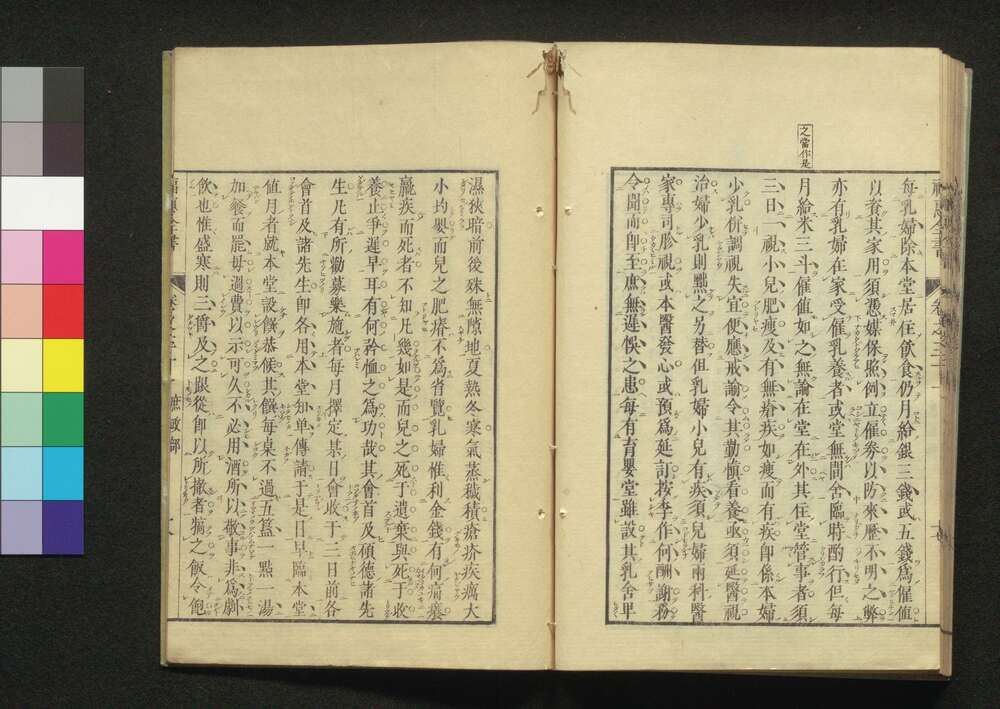 之當作是
每乳婦除本堂居住飲食仍月給銀三錢或五錢爲僱値
以養其家用須憑媒保照例立僱劵以防來歷不明之弊
亦有乳婦在家受僱乳養者或堂無間舍臨時酌行但每
月給米三斗僱値如之無論在堂在外其住堂管事者須
三日一視小兒肥瘦及有無瘡疾如瘦而有疾卽係本婦
少乳倂調視失宜便應戒諭令其勤愼看養亟須延醫視
治婦少乳則黜之另替但乳婦小兒有疾須兒婦兩科醫
家專司胗視或本醫發心或預爲延訂按季作何酬謝務
令聞而卽至庶無遲悞之患每有育嬰堂雖設其乳舍早
濕狹堦前後殊無隙地夏熱冬寒氣蒸穢積瘡疥疾癘大
小均嬰而兒之肥瘠不爲省覽乳婦惟利金錢有何痛癢
羸疾而死者不知凡幾如是而兒之死于遺棄與死于收
養止爭遲早耳有何矜恤之爲功哉其會首及碩德諸先
生凡有所勸募樂施者每月擇定某日會收于三日前各
會首及諸先生卽各用本堂知单傳請于是日早臨本堂
値月者就本堂設饌恭候其饌每桌不過五簋一點一湯
加餐而罷毋過費以示可久不必用酒所以敬事非爲劇
飮也惟盛寒則三爵及之跟從卽以所撤者犒之飯令飽
福惠全書 卷之三十一 庶政部